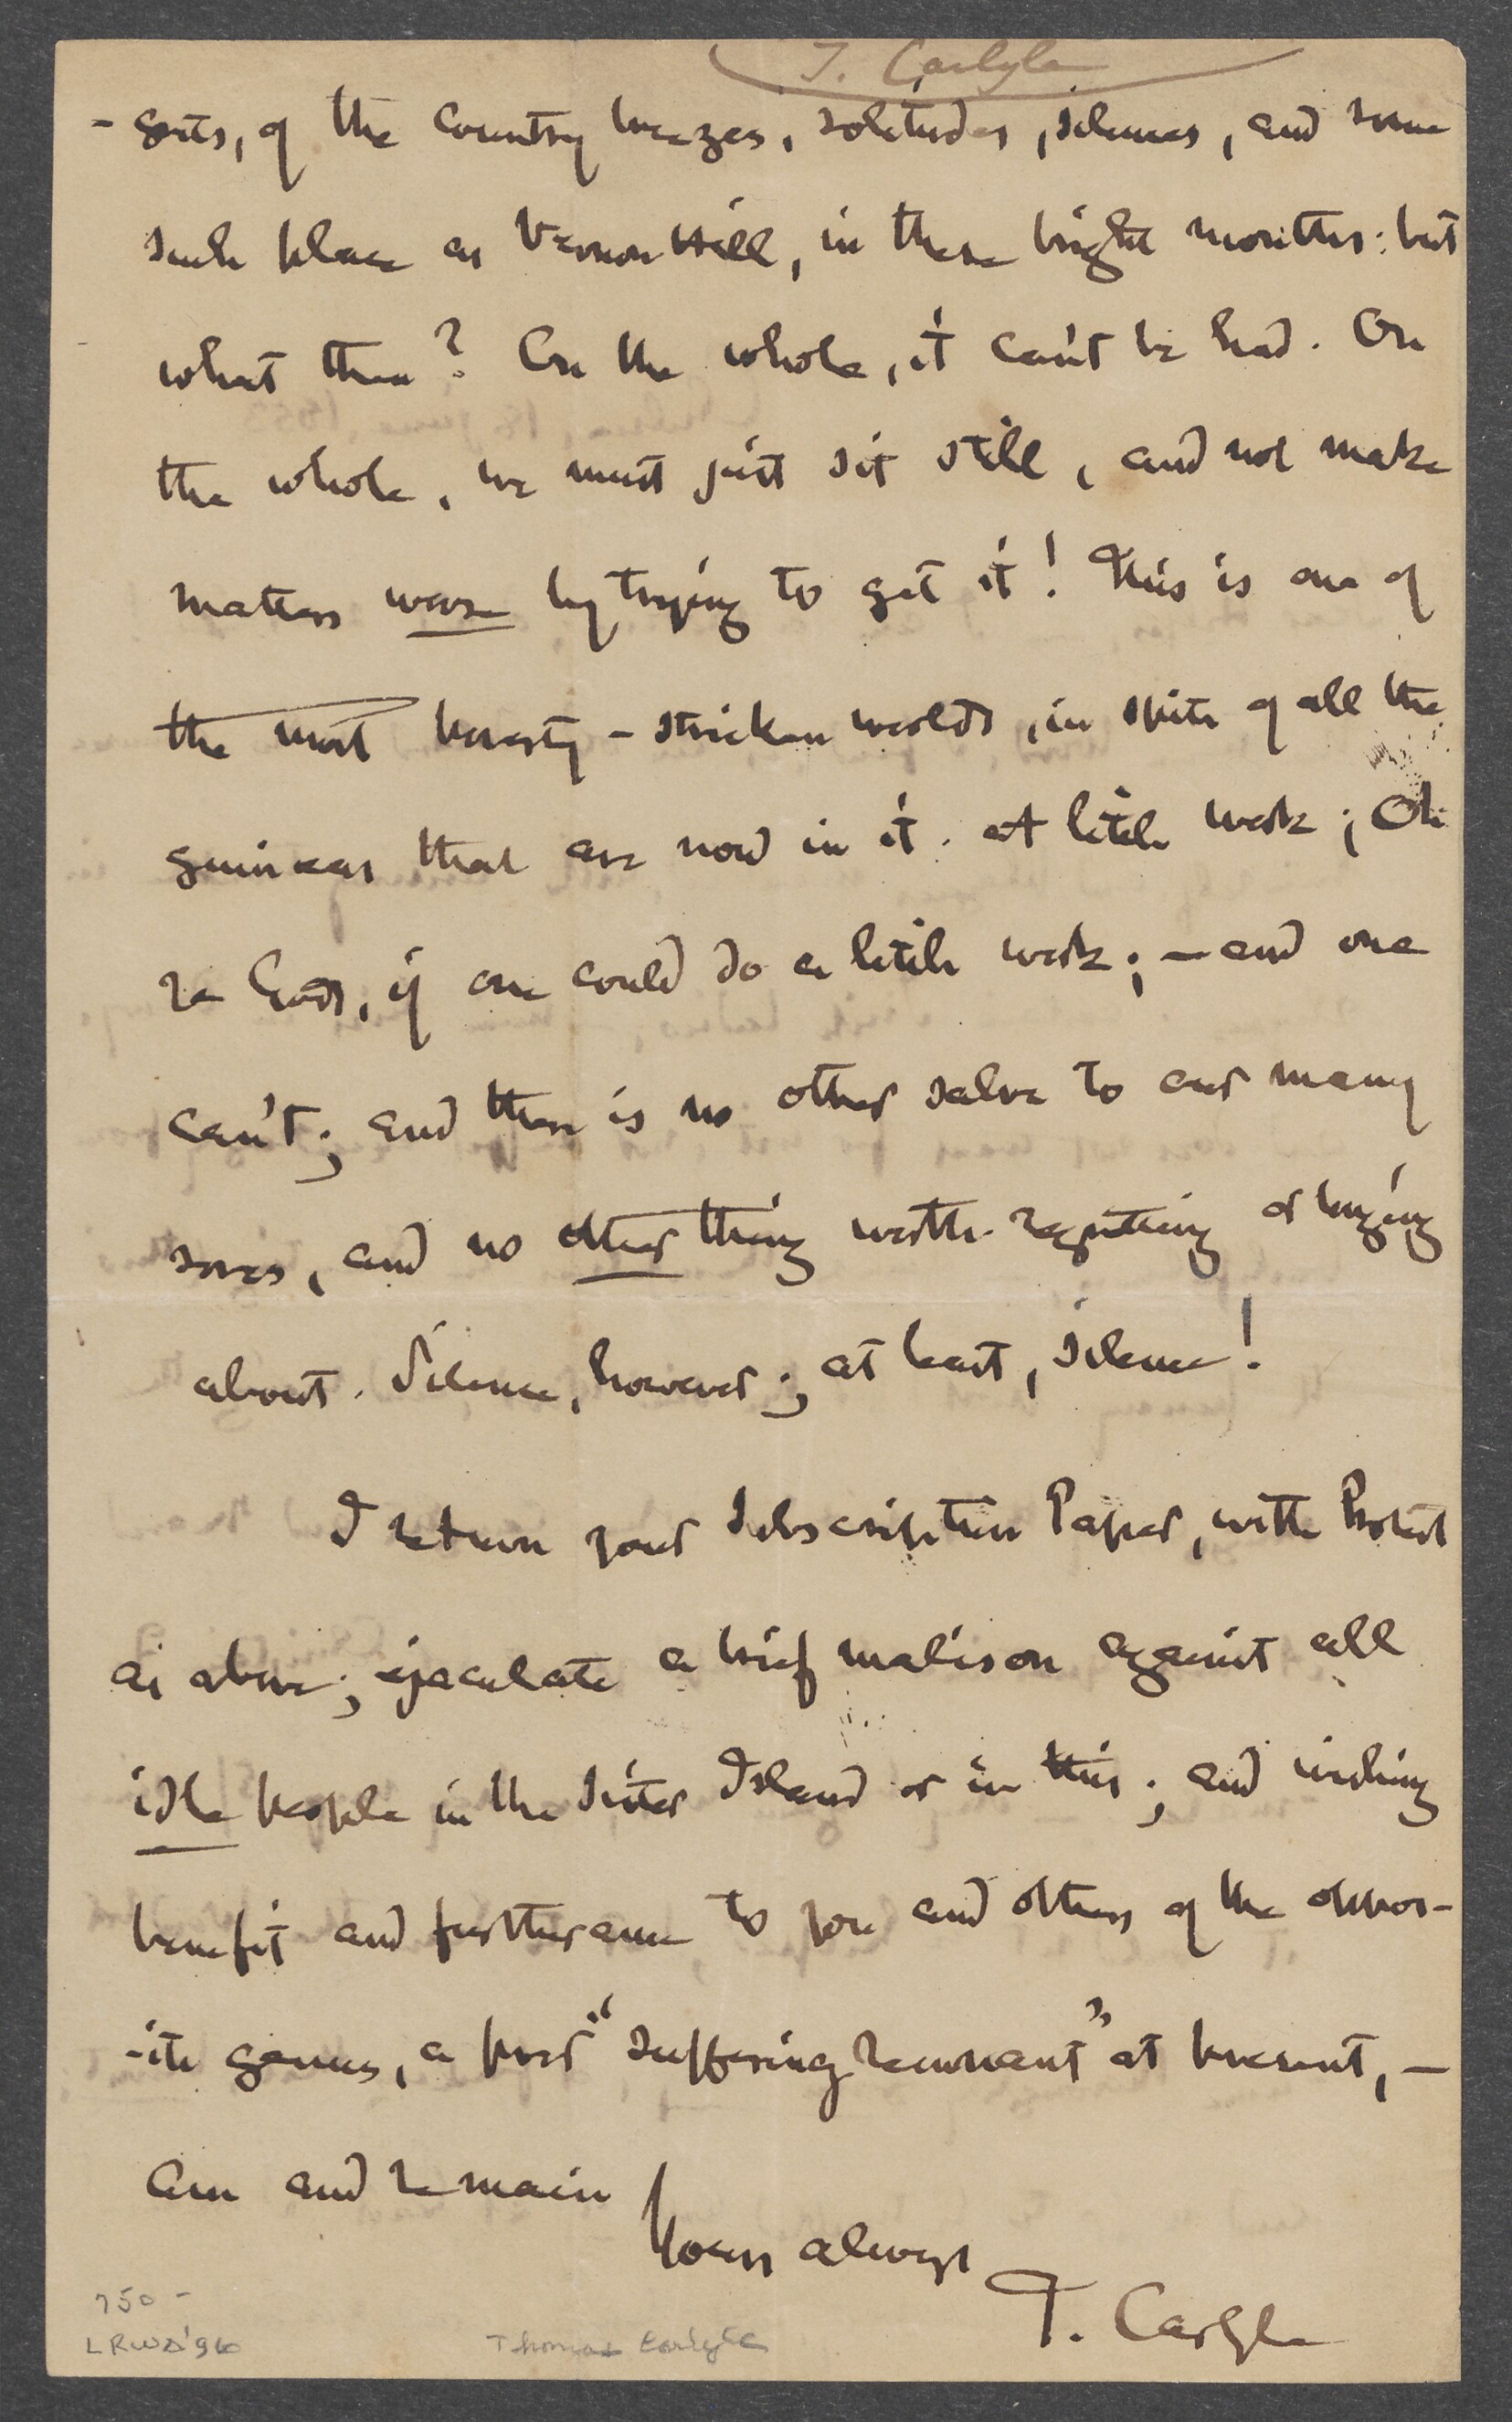 T. Carlyle
-gots, of the country breezes, solitudes, silences, and some
such place as Vernon Hill, in these bright months: but
what then? On the whole, it can't be had. On
the whole, we must just sit still, and not make
matters worse by trying to get it! This is one of
the most poverty-stricken worlds, in spite of all the
guineas that are now in it. A little work; Oh
ye Gods, if one could do a little work; — and one
can't; and there is no other salve to our many
sores, and no other thing worth regretting or buying
about. Silence, however; at least, silence!
I return your Subscription Paper, with Protest
as above; ejaculate a brief malison against all
idle people in the Sister Island or in this; and wishing
benefit and furtherance to you and others of the oppos-
-ite genus, a poor "suffering remnant" at present, —
am and remain
Yours always
T. Carlyle
750 -
LRWD'96
Thomas Carlyle